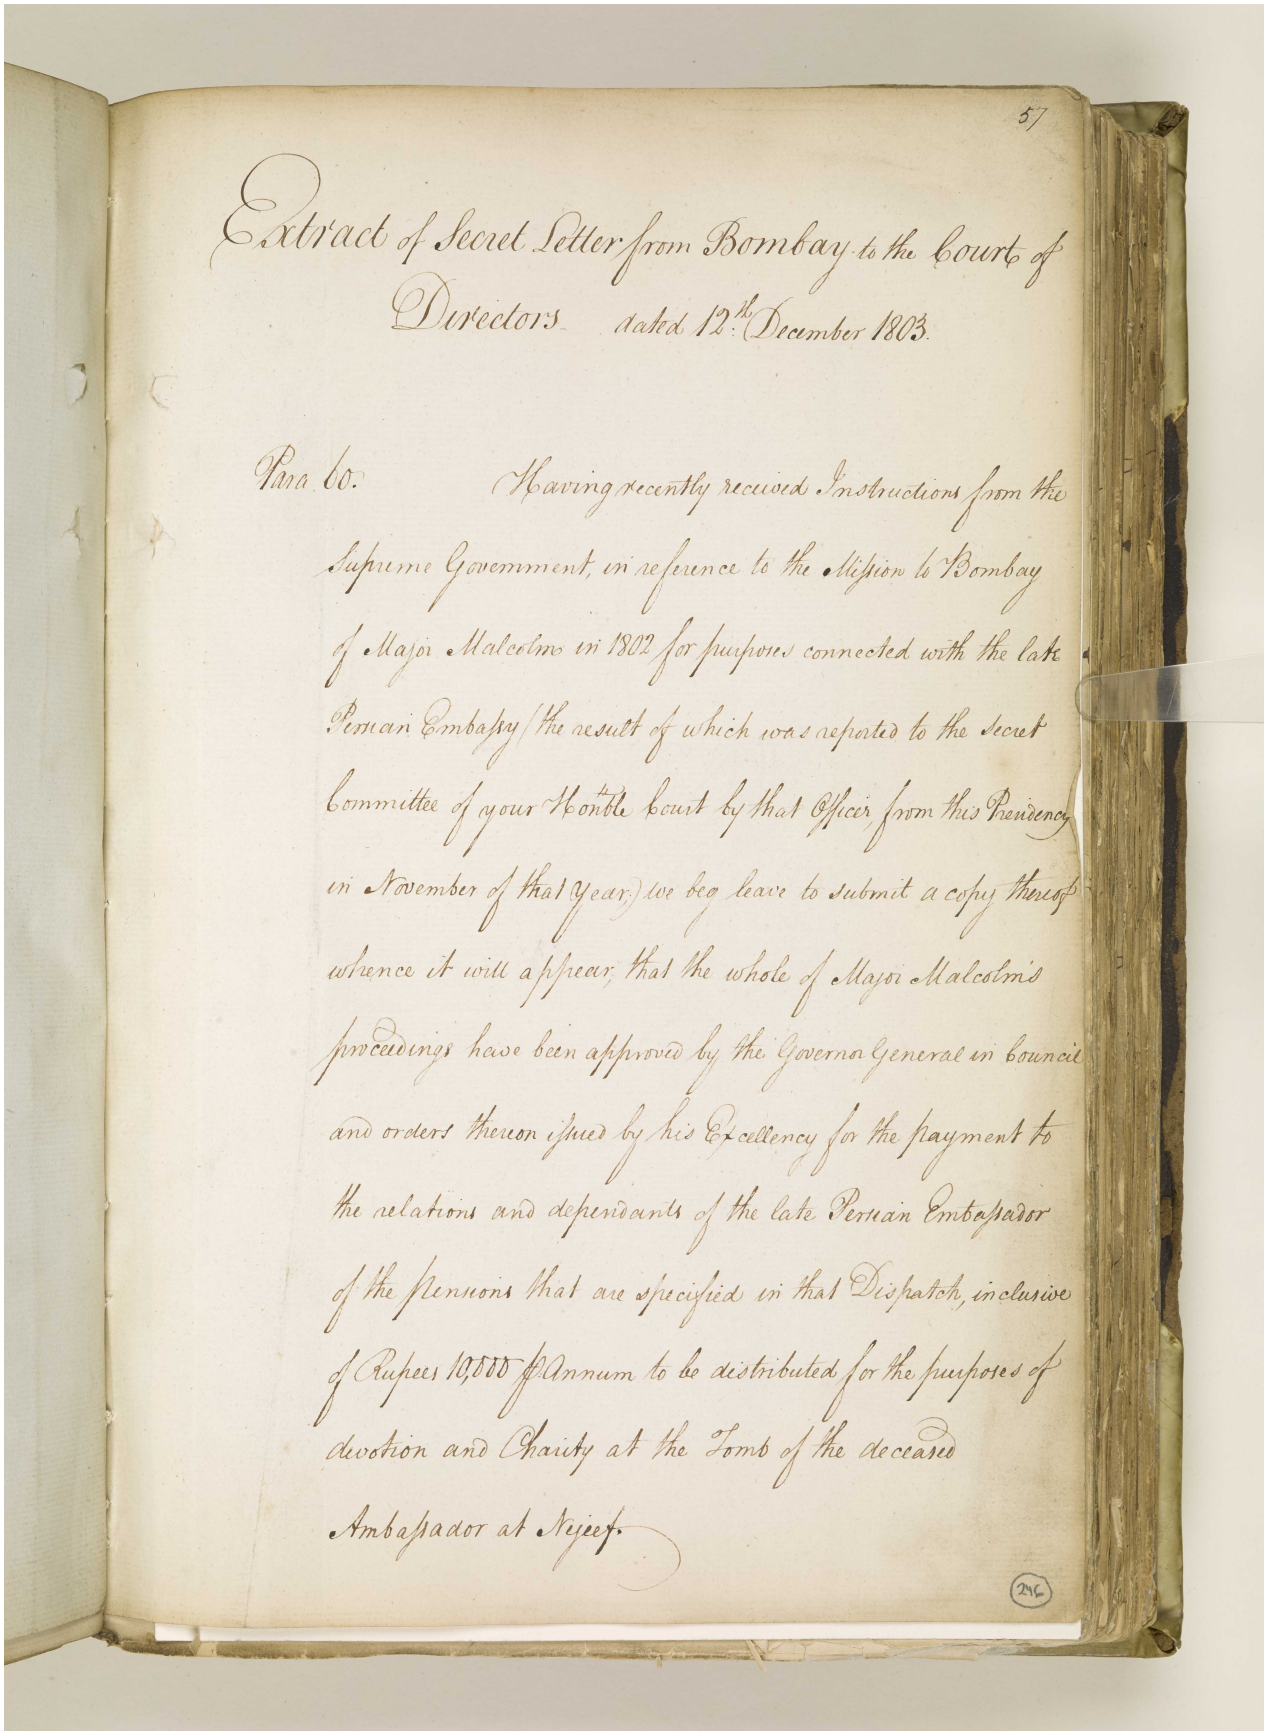 57
Extract of Secret Letter from Bombay to the Court of
Directors dated 12th December 1803.
Para 60. Having recently received Instructions from the
Supreme Government, in reference to the Mission to Bombay
of Major Malcolm in 1802 for purposes connected with the late
Persian Embassy (the result of which was reported to the Secret
Committee of your Honble Court by that Officer, from this Presidency
in November of that Year,) we beg leave to submit a copy thereof
whence it will appear, that the whole of Major Malcolm's
proceedings have been approved by the Governor General in Council
and orders thereon issued by his Excellency for the payment to
the relations and dependants of the late Persian Embassador
of the pensions that are specified in that Dispatch, inclusive
of Rupees 10,000 ⅌ Annum to be distributed for the purposes of
devotion and Charity at the Tomb of the deceased
Ambassador at Nejeef.
246